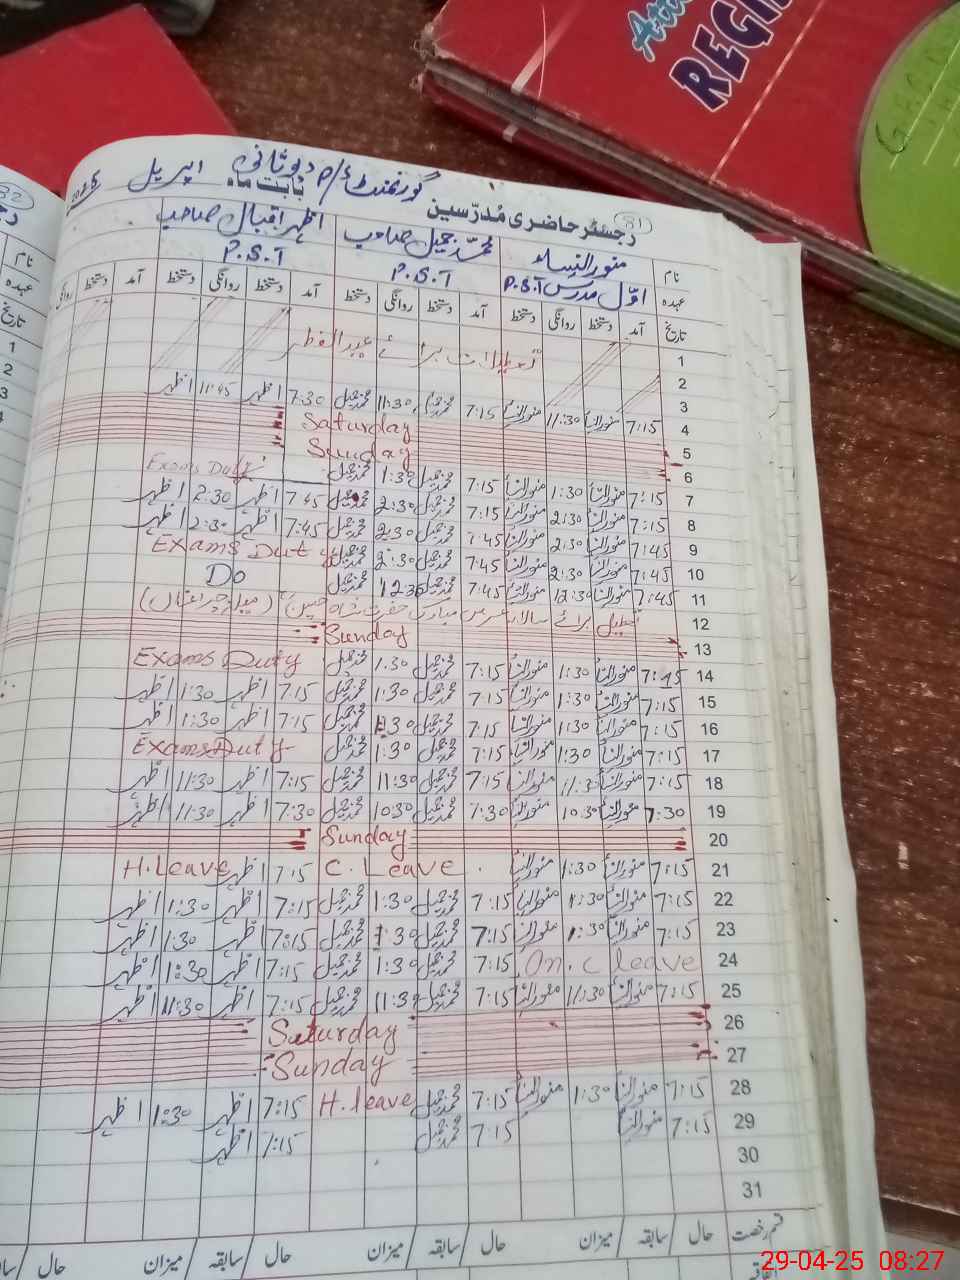 REGI
82
81
گورنمنٹ P/S دوثانی
رجسٹر حاضری مُدرّسین بابت ماہ اپریل 2025
نام منور النساء محمد جمیل صاحب اظہر اقبال صاحب
عہدہ اوّل مدرس P.S.T P.S.T P.S.T
تاریخ آمد دستخط روانگی دستخط آمد دستخط روانگی دستخط آمد دستخط روانگی دستخط آمد دستخط روانگی
1
2 تعطیلات برائے عید الفطر
3
4 7:15 منور النساء 11:30 منور النساء 7:15 محمد جمیل 11:30 محمد جمیل 7:30 اظہر 11:45 اظہر
5 Saturday
6 Sunday
7 7:15 منور النساء 1:30 منور النساء 7:15 محمد جمیل 1:30 محمد جمیل Exams Duty
8 7:15 منور النساء 2:30 منور النساء 7:15 محمد جمیل 2:30 محمد جمیل 7:45 اظہر 2:30 اظہر
9 7:45 منور النساء 2:30 منور النساء 7:45 محمد جمیل 2:30 محمد جمیل 7:45 اظہر 2:30 اظہر
10 7:45 منور النساء 2:30 منور النساء 7:45 محمد جمیل 2:30 محمد جمیل Exams Duty
11 7:45 منور النساء 12:30 منور النساء 7:45 محمد جمیل 12:30 محمد جمیل Do
12 تعطیل برائے سالانہ عرس مبارک حضرت شاہ حسین (میلہ چراغاں)
13 Sunday
14 7:15 منور النساء 1:30 منور النساء 7:15 محمد جمیل 1:30 محمد جمیل Exams Duty
15 7:15 منور النساء 1:30 منور النساء 7:15 محمد جمیل 1:30 محمد جمیل 7:15 اظہر 1:30 اظہر
16 7:15 منور النساء 1:30 منور النساء 7:15 محمد جمیل 1:30 محمد جمیل 7:15 اظہر 1:30 اظہر
17 7:15 منور النساء 1:30 منور النساء 7:15 محمد جمیل 1:30 محمد جمیل Exams Duty
18 7:15 منور النساء 11:30 منور النساء 7:15 محمد جمیل 11:30 محمد جمیل 7:15 اظہر 11:30 اظہر
19 7:30 منور النساء 10:30 منور النساء 7:30 محمد جمیل 10:30 محمد جمیل 7:30 اظہر 11:30 اظہر
20 Sunday
21 7:15 منور النساء 1:30 منور النساء C. Leave. 7:15 اظہر H.Leave
22 7:15 منور النساء 1:30 منور النساء 7:15 محمد جمیل 1:30 محمد جمیل 7:15 اظہر 1:30 اظہر
23 7:15 منور النساء 1:30 منور النساء 7:15 محمد جمیل 1:30 محمد جمیل 7:15 اظہر 1:30 اظہر
24 On. C leave 7:15 محمد جمیل 1:30 محمد جمیل 7:15 اظہر 1:30 اظہر
25 7:15 منور النساء 11:30 منور النساء 7:15 محمد جمیل 11:30 محمد جمیل 7:15 اظہر 11:30 اظہر
26 Saturday
27 Sunday
28 7:15 منور النساء 1:30 منور النساء 7:15 محمد جمیل H.leave 7:15 اظہر 1:30 اظہر
29 7:15 منور النساء 7:15 محمد جمیل 7:15 اظہر
30
31
قسم رخصت حال سابقہ میزان حال سابقہ میزان حال سابقہ میزان حال
29-04-25 08:27